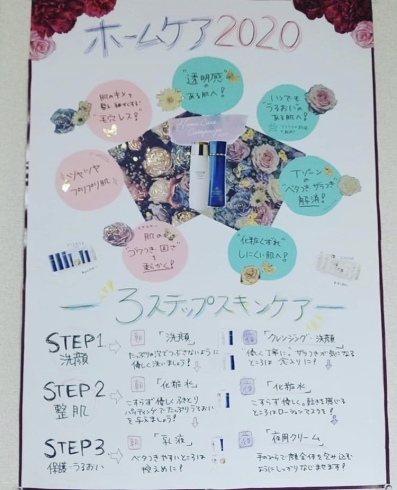 ホームケア2020
"透明感"の
ある肌へ!
肌のキメを
整え
"毛穴レス!"
いつでも
"うるおい"の
ある肌へ!
ツヤツヤ
プリプリ肌
Tゾーンの
"ベタつきザラつき
解消!
肌の
"ゴワつき固さ"
を柔らかく!
"化粧くずれ"
しにくい肌へ!
3ステップスキンケア
STEP1.
洗顔
朝「洗顔」
たっぷりの泡でこすらないように
優しく洗いましょう!
夜「クレンジング・洗顔」
優しく丁寧に。ザラつきが気になる
ところは念入りに!
STEP2
整肌
朝「化粧水」
こすらず優しくふきとり
パッティングでたっぷりうるおい
を与えましょう!
夜「化粧水」
こすらず優しく。乾きを感じる
ところはローションマスクを!
STEP3
保護・うるおい
朝「乳液」
ベタつきやすいところは
控えめに!
夜「夜用クリーム」
手のひらで顔全体を包み込む
ようにしっかりなじませます!